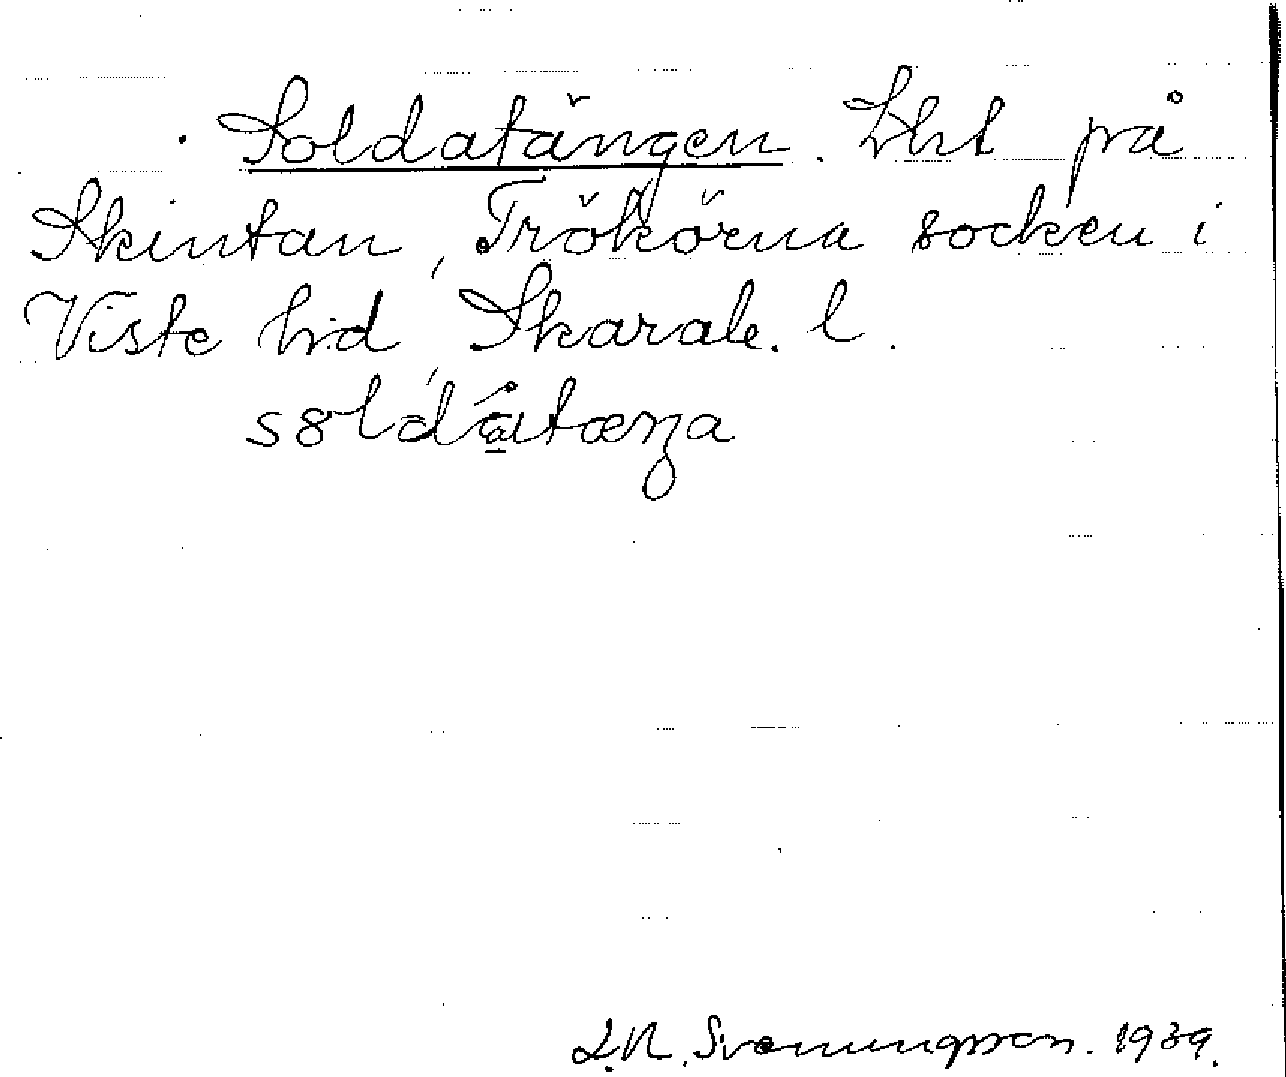 Soldatängen. Lht på
Skintan, Trökörna socken i
Viste hd, Skarab. l.
J. N. Svenungsson. 1939.